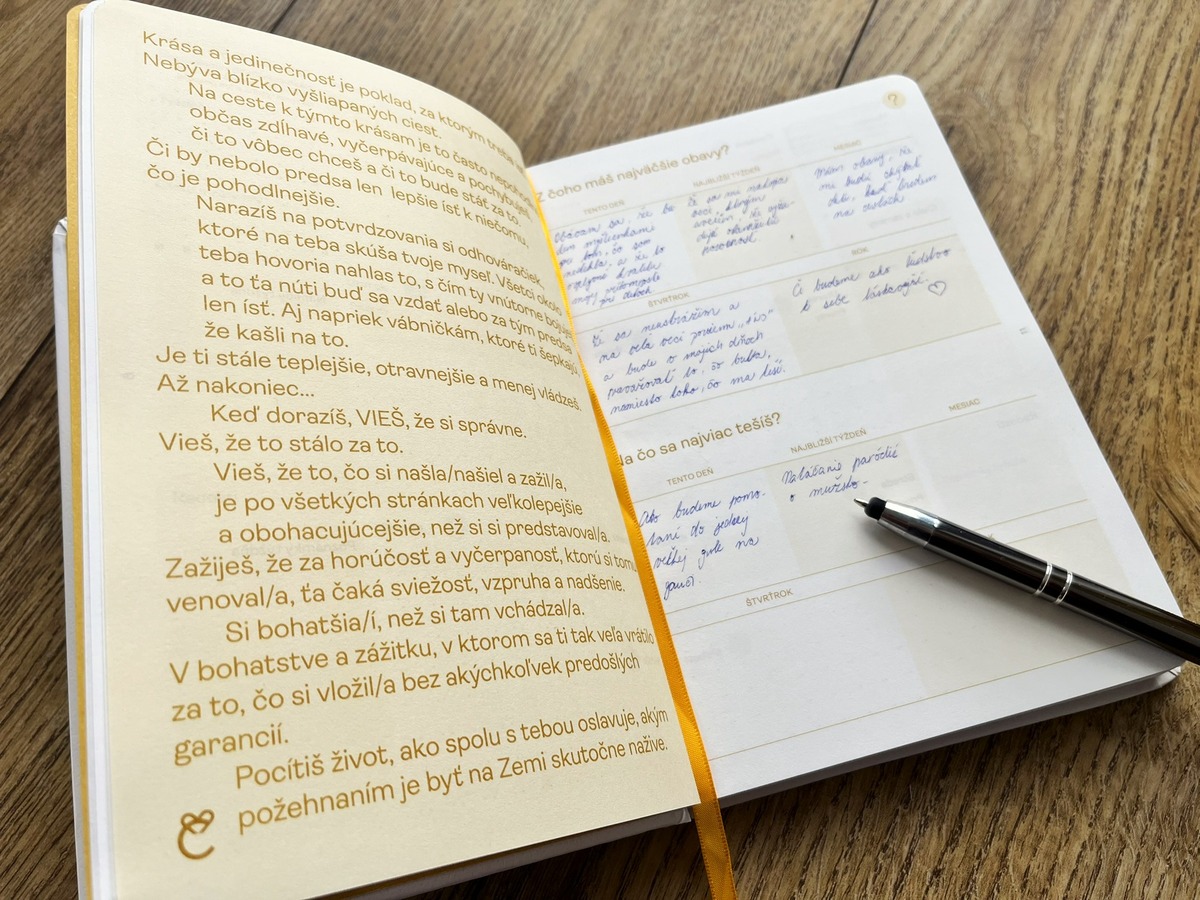 Krása a jedinečnosť je poklad, za ktorým treba
Nebýva blízko vyšliapaných ciest.
Na ceste k týmto krásam je to často
občas zdĺhavé, vyčerpávajúce a pochybuješ,
či to vôbec chceš a či to bude stáť za to.
Či by nebolo predsa len lepšie ísť k niečomu,
čo je pohodlnejšie.
Narazíš na potvrdzovania si odhováračiek,
ktoré na teba skúša tvoje myseľ. Všetci okolo
teba hovoria nahlas to, s čím ty vnútorne bojuješ
a to ťa núti buď sa vzdať alebo za tým predsa
len ísť. Aj napriek vábničkám, ktoré ti šepkajú,
že kašli na to.
Je ti stále teplejšie, otravnejšie a menej vládzeš.
Až nakoniec...
Keď dorazíš, VIEŠ, že si správne.
Vieš, že to stálo za to.
Vieš, že to, čo si našla/našiel a zažil/a,
je po všetkých stránkach veľkolepejšie
a obohacujúcejšie, než si si predstavoval/a.
Zažiješ, že za horúčosť a vyčerpanosť, ktorú si tomu
venoval/a, ťa čaká sviežosť, vzpruha a nadšenie.
Si bohatšia/í, než si tam vchádzal/a.
V bohatstve a zážitku, v ktorom sa ti tak veľa vrátilo
za to, čo si vložil/a bez akýchkoľvek predošlých
garancií.
Pocítiš život, ako spolu s tebou oslavuje, akým
požehnaním je byť na Zemi skutočne nažive.
?
Z čoho máš najväčšie obavy?
TENTO DEŇ
Obávam sa, že
že som
NAJBLIŽŠÍ TÝŽDEŇ
Že sa mi
veci, ktorým
verím, že
MESIAC
Mám obavy, že
mi budú chýbať
deti, keď budem
na
ŠTVRŤROK
Že sa
na veľa vecí poviem „áno"
a bude v mojich dňoch
prevažovať to, čo treba,
namiesto toho, čo ma teší.
ROK
Či budeme ako ľudstvo
k sebe láskavejší.
Na čo sa najviac tešíš?
TENTO DEŇ
Ako budeme
do jednej
veľkej gule na
gauči.
NAJBLIŽŠÍ TÝŽDEŇ
Natáčanie paródie
o mužsko-
MESIAC
ŠTVRŤROK